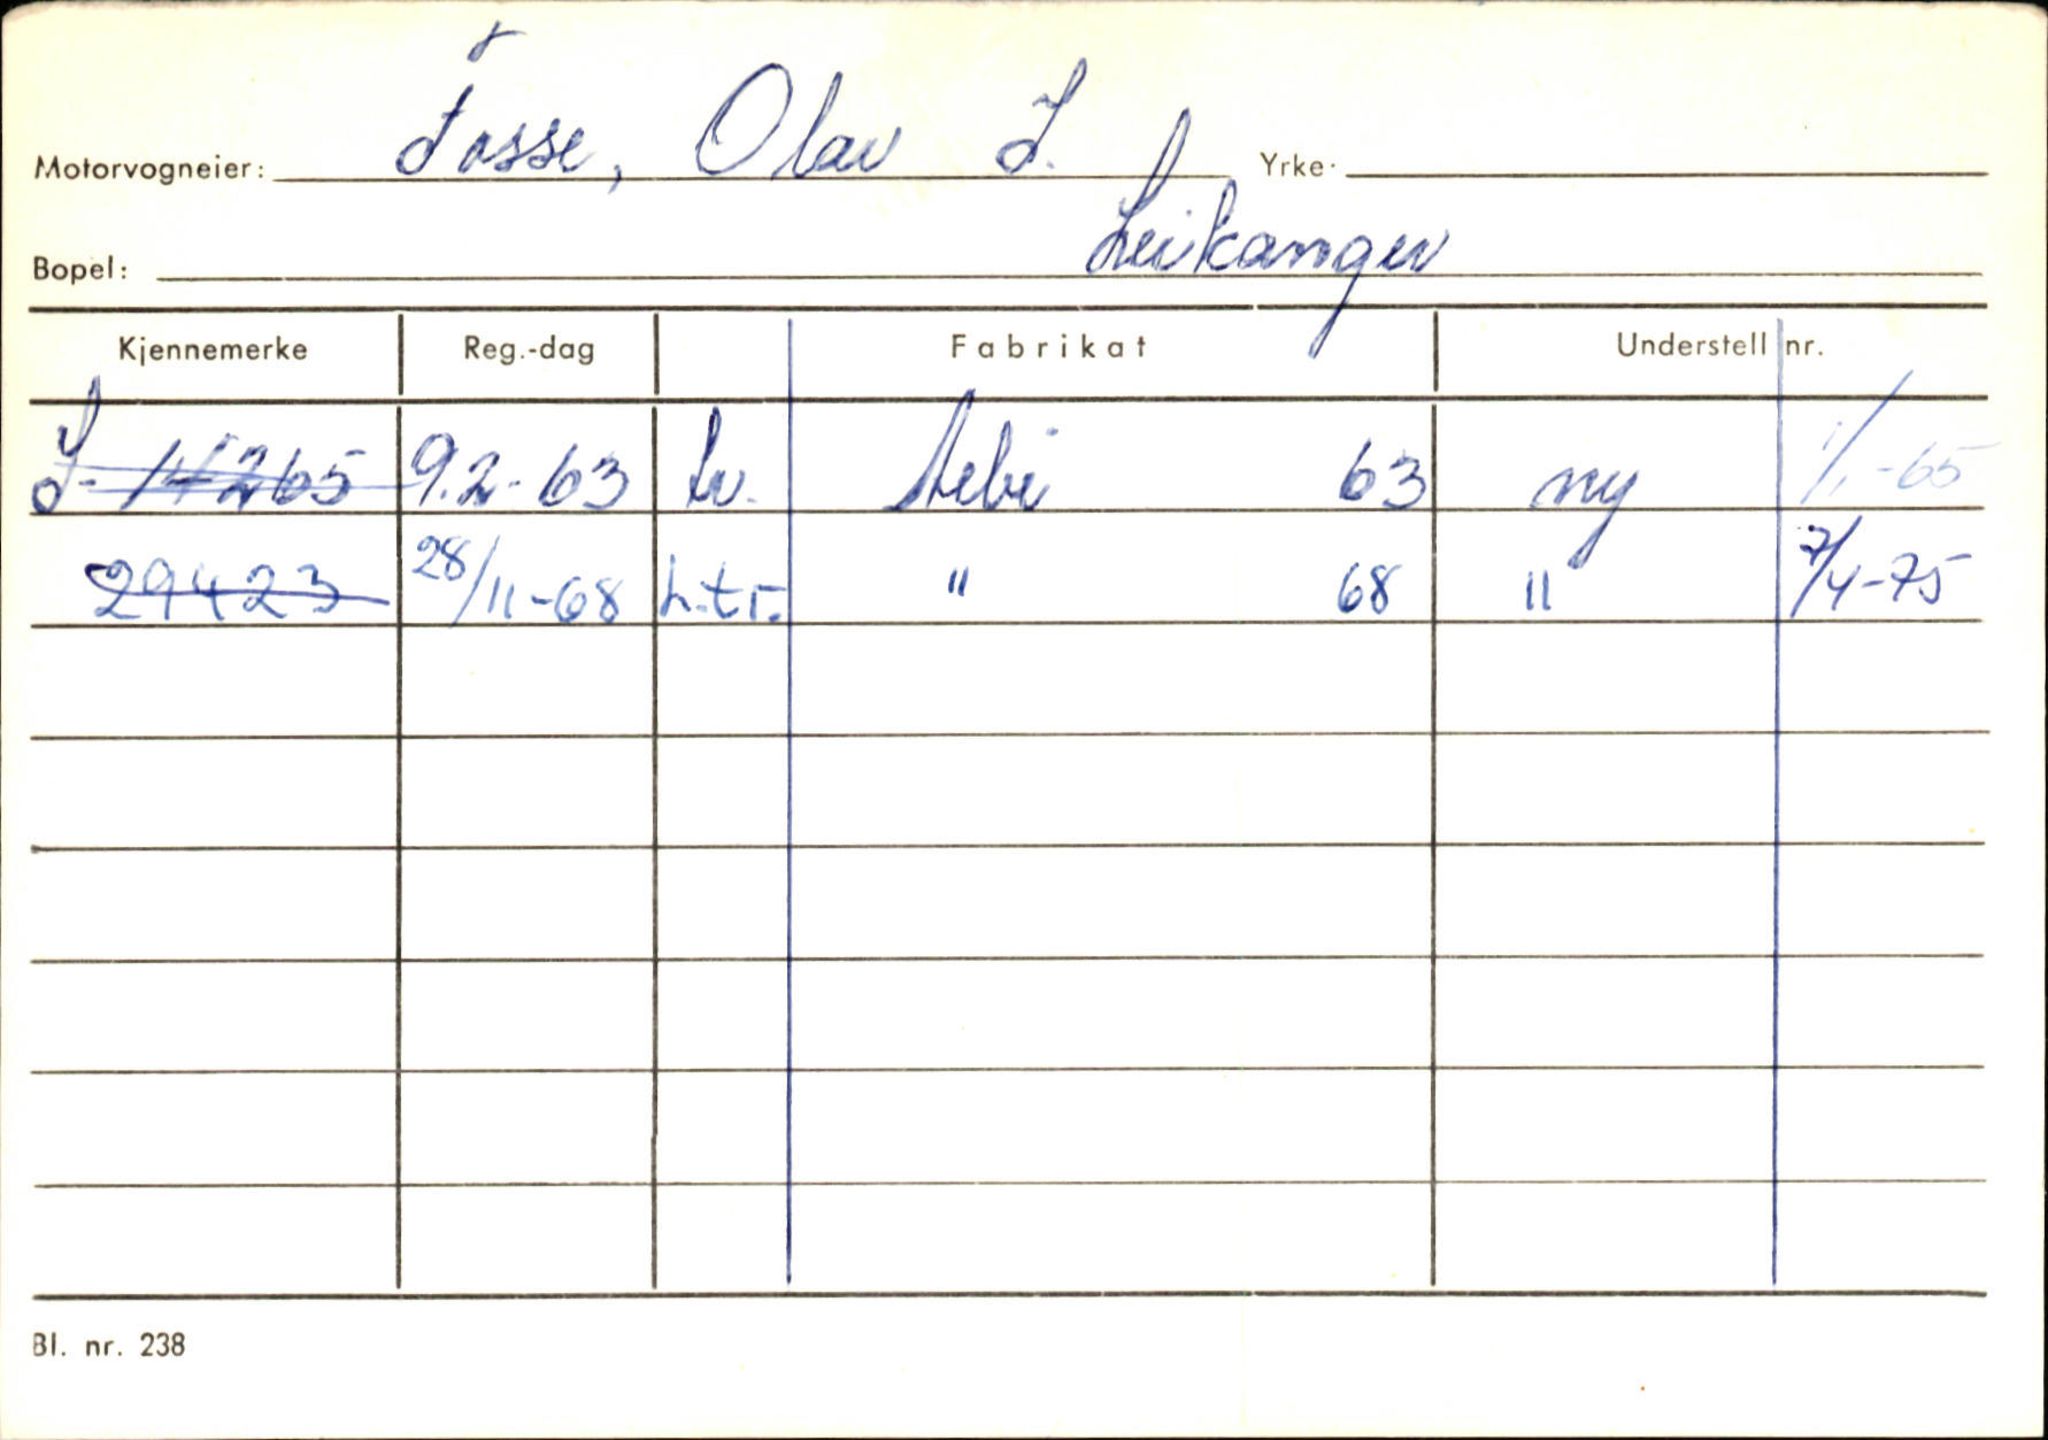 Motorvogneier: Fosse, Olav I. Yrke:
Bopel: Leikanger
Kjennemerke Reg.-dag Fabrikat Understell nr.
S- 14265 9.2-63 Lv. Aebi 63 ny 1/1-65
29423 28/11-68 L.tr. " 68 " 7/4-75
Bl. nr. 238